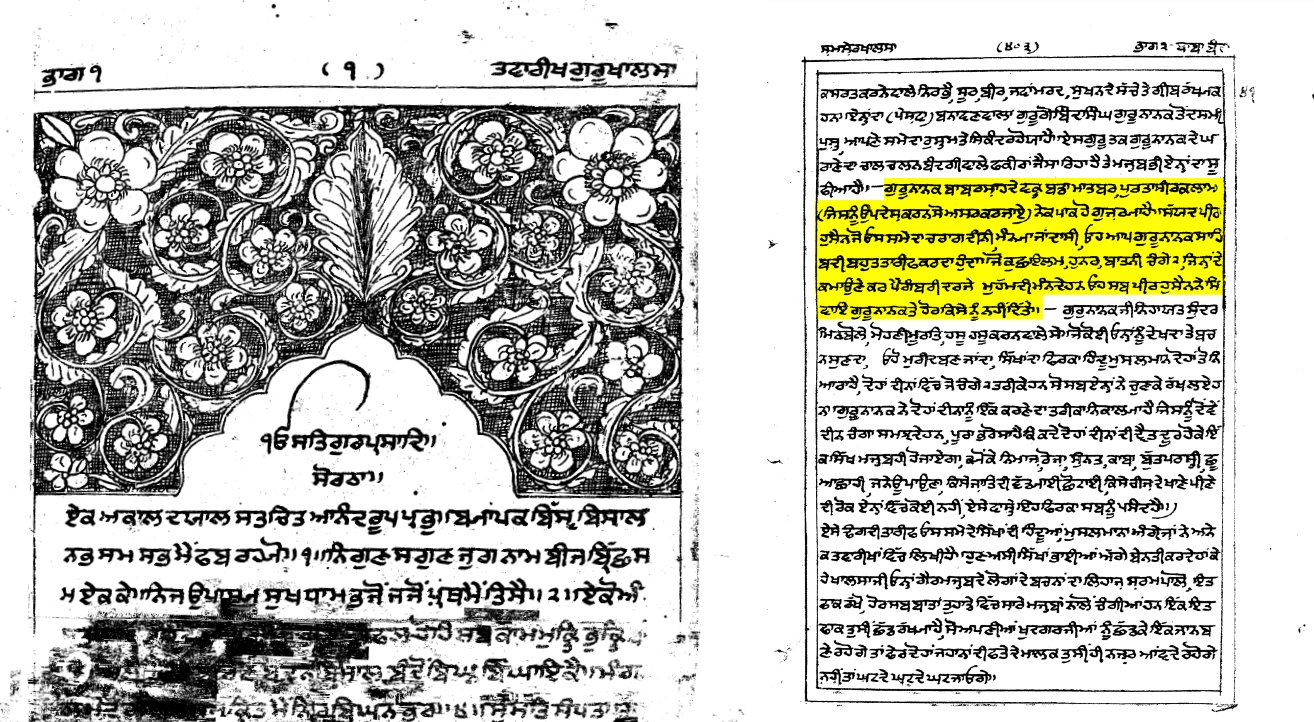 ਭਾਗ ੧ ( ੧ ) ਤਵਾਰੀਖ ਗੁਰੂਖਾਲਸਾ
੧ਓ ਸਤਿਗੁਰਪ੍ਰਸਾਦਿ॥
ਸੋਰਠਾ॥
ਏਕ ਅਕਾਲ ਦਯਾਲ ਸਤਚਿਤ ਆਨੰਦ ਰੂਪ ਪ੍ਰਭੂ॥ ਬਜਾਪਕ ਬਿੱਸ੍ਵ ਬਿਸਾਲ
ਨਭ ਸਮ ਸਭ ਮੈਂ ਫਬ ਰਹਜੋ॥ ੧॥ ਨਿਗੁਣ ਸਗੁਣ ਜੁਗ ਨਾਮ ਬੀਜ ਬ੍ਰਿੱਛ ਸ
ਮ ਏਕ ਕੇ॥ ਨਿਜ ਉਪਾਸ਼ਜ ਸੁਖ ਧਾਮ ਭਜੋਂ ਜਜੋਂ ਪ੍ਰਥਮੈਂ ਤਿਸੈ॥ ੨॥ ਏਕੋਅੰ
ਸਬ ਕਾਮ ਮੁਕ੍ਤਿ ਭੁਕ੍ਤਿ
ਸ਼ਮਸ਼ੇਰਖਾਲਸਾ (੪੦੩) ਭਾਗ ੨
ਕਸਰਤ ਕਰਨੇ ਵਾਲੇ ਨਿਰਭੈ, ਸੂਰ, ਬੀਰ, ਜਵਾਂਮਰਦ, ਸੁਖਨ ਦੇ ਸੱਚੇ ਤੇ ਗੀਬ ਰੱਖਮਕ
ਹਨ। ਏਨ੍ਹਾਂ ਦਾ (ਪੇਸ਼ਵਾ) ਬਨਾਵਣ ਵਾਲਾ ਗੁਰੂ ਗੋਬਿੰਦ ਸਿੰਘ ਗੁਰੂ ਨਾਨਕ ਤੋਂ ਦਸਮੀ
ਪੁਸ਼੍ਤ, ਆਪਣੇ ਸਮੇਂ ਦਾ ਰੁਸੁਤਮ ਤੇ ਸਿਕੰਦਰ ਹੋਯਾ ਹੈ। ਏਸ ਗੁਰੂ ਤਕ ਗੁਰੂ ਨਾਨਕ ਦੇ ਘ
ਰਾਣੇ ਦਾ ਚਾਲ ਚਲਨ ਬੰਦਗੀ ਵਾਲੇ ਫਕੀਰਾਂ ਜੈਸਾ ਰਿਹਾ ਹੈ ਤੇ ਮਜ਼ੁਬ ਭੀ ਏਨ੍ਹਾਂ ਦਾ ਸੂ
ਫੀਆ ਹੈ॥— ਗੁਰੂ ਨਾਨਕ ਬਾਬਰ ਸ਼ਾਹ ਦੇ ਵਕ੍ਤ ਬਡਾ ਮਾਤਬਰ, ਪੁਰ ਤਾਸੀਰ ਕਲਾਮ
(ਜਿਸਨੂੰ ਉਪਦੇਸ਼ ਕਰਨ ਸੋ ਅਸਰ ਕਰ ਜਾਏ) ਨੇਕ ਪਾਕ ਹੋ ਗੁਜ਼ਰਜਾ ਹੈ। ਸੱਯਦ ਪੀਰ
ਹੁਸੈਨ ਜੋ ਓਸ ਸਮੇ ਦਾ ਚਰਾਗ ਦੀਨੀ ਮੰਨਜਾ ਜਾਂਦਾ ਸੀ, ਓਹ ਆਪ ਗੁਰੂ ਨਾਨਕ ਸਾਹਿ
ਬ ਦੀ ਬਹੁਤ ਤਾਰੀਫ ਕਰਦਾ ਹੁੰਦਾ। ਜੋ ਕੁਛ ਇਲਮ, ਹੁਨਰ, ਬਾਤਨੀ ਚੰਗੇ ੨, ਜਿਨ੍ਹਾਂ ਦੇ
ਕਮਾਉਣੇ ਕਰ ਪੈਗੰਬਰੀ ਦਰਜੇ ਮੁਹੰਮਦੀ ਮੰਨਦੇ ਹਨ, ਓਹ ਸਬ ਪੀਰ ਹੁਸੈਨ ਨੇ ਸਿ
ਵਾਏ ਗੁਰੂ ਨਾਨਕ ਤੇ ਹੋਰ ਕਿਸੇ ਨੂੰ ਨਹੀਂ ਦਿੱਤੇ॥— ਗੁਰੂ ਨਾਨਕ ਜੀ ਨਿਹਾਯਤ ਸੁੰਦਰ
ਮਿਠਬੋਲੇ, ਮੋਹਣੀ ਮੂਰਤਿ, ਹਸੂ ਹਸੂ ਕਰਨ ਵਾਲੇ ਸੇ। ਜੋ ਕੋਈ ਓਨ੍ਹਾਂ ਨੂੰ ਦੇਖਦਾ ਤੇ ਬਚ
ਨ ਸੁਣਦਾ, ਓਹ ਮੁਰੀਦ ਬਣ ਜਾਂਦਾ, ਸਿੱਖਾਂ ਦਾ ਫਿਰਕਾ ਹਿੰਦੂ ਮੁਸਲਮਾਨ ਦੋਹਾਂ ਤੋਂ ਨਿ
ਆਰਾ ਹੈ, ਦੋਹਾਂ ਦੀਨਾਂ ਵਿੱਚ ਜੋ ਚੰਗੇ ੨ ਤਰੀਕੇ ਹਨ ਸੋ ਸਬ ਏਨ੍ਹਾਂ ਨੇ ਚੁਣਕੇ ਰੱਖ ਲਏ ਹ
ਨ। ਗੁਰੂ ਨਾਨਕ ਨੇ ਦੋਹਾਂ ਦੀਨਾਂ ਨੂੰ ਇੱਕ ਕਰਣੇ ਦਾ ਤਰੀਕਾ ਨਿਕਾਲਜਾ ਹੈ ਜਿਸਨੂੰ ਦੋਵੇਂ
ਦੀਨ ਚੰਗਾ ਸਮਝਦੇ ਹਨ, ਪੂਰਾ ਭਰੋਸਾ ਹੈ ਕਿ ਕਦੇ ਦੋਹਾਂ ਦੀਨਾਂ ਦੀ ਦ੍ਵੈਤ ਦੂਰ ਹੋਕੇ ਇੱ
ਕ ਸਿੱਖ ਮਜ਼ੁਬ ਹੀ ਹੋ ਜਾਏਗਾ, ਕਜੋਂਕੇ ਨਿਮਾਜ਼, ਰੋਜ਼ਾ, ਸੁੰਨਤ, ਕਾਬਾ, ਬੁੱਤਪਰਸ੍ਤੀ, ਛੂ
ਆਛਾਹੀ, ਜਨੇਊ ਪਾਉਣਾ, ਕਿਸੇ ਜਾਤਿ ਦੀ ਵੱਤਮਾਈ ਛੋਟਾਈ, ਕਿਸੇ ਚੀਜ਼ ਦੇ ਖਾਣੇ ਪੀਣੇ
ਦੀ ਰੋਕ ਏਨ੍ਹਾਂ ਵਿੱਚ ਕੋਈ ਨਹੀਂ, ਏਸੇ ਵਾਸ੍ਤੇ ਇਹ ਫਿਰਕਾ ਸਬਨੂੰ ਪਸਿੰਦ ਹੈ॥)
ਏਸੇ ਢਿਗ ਦੀ ਤਾਰੀਫ ਓਸ ਸਮੇਂ ਦੇ ਸਿੱਖਾਂ ਦੀ ਹਿੰਦੂਆਂ ਮੁਸਲਮਾਨਾਂ ਅੰਗ੍ਰੇਜਾਂ ਨੇ ਅਨੇ
ਕ ਤਵਾਰੀਖਾਂ ਵਿੱਚ ਲਿਖੀ ਹੈ। ਹੁਣ ਅਸੀਂ ਸਿੱਖਾਂ ਭਾਈਆਂ ਅੱਗੇ ਬੇਨਤੀ ਕਰਦੇ ਹਾਂ ਕੇ
ਹੇ ਖਾਲਸਾ ਜੀ ਓਨ੍ਹਾਂ ਗੈਰ ਮਜ਼ੁਬ ਦੇ ਲੋਗਾਂ ਦੇ ਬਚਨਾਂ ਦਾ ਲਿਹਾਜ਼ ਸ਼ਰਮ ਪਾਲੋ, ਇਤ
ਫਾਕ ਰੱਖੋ, ਹੋਰ ਸਬ ਬਾਤਾਂ ਤੁਹਾਤੇ ਵਿੱਚ ਸਾਰੇ ਮਜ਼ੁਬਾਂ ਨਾਲੋਂ ਚੰਗੀਆਂ ਹਨ ਇਕ ਇਤ
ਫਾਕ ਤੁਸੀਂ ਛੱਤ ਰੱਖਜਾ ਹੈ, ਸੋ ਅਪਣੀਆਂ ਖੁਦਗਰਜੀਆਂ ਨੂੰ ਛੱਤਕੇ ਇੱਕ ਜਾਨ ਬ
ਣੇ ਰਹੋਗੇ ਤਾਂ ਫੇਰ ਦੋਹਾਂ ਜਹਾਨਾਂ ਦੀ ਫਤੇ ਦੇ ਮਾਲਕ ਤੁਸੀਂ ਹੀ ਨਜ਼ਰ ਆਂਵਦੇ ਰਹੋਗੇ
ਨਹੀਂ ਤਾਂ ਘਟਦੇ ਘਟਦੇ ਘਟ ਜਾਓਗੇ॥